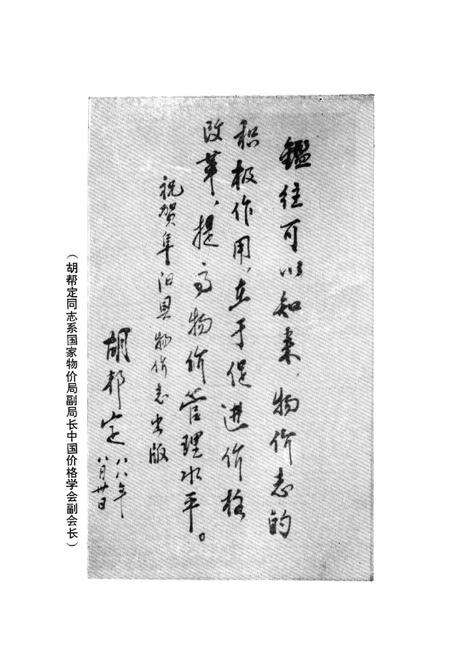 鑑往可以知来，物价志的
积极作用，在于促进价格
改革，提高物价管理水平。
祝贺阜阳县物价志出版
胡邦定
八八年
八月廿日
（胡帮定同志系国家物价局副局长中国价格学会副会长）